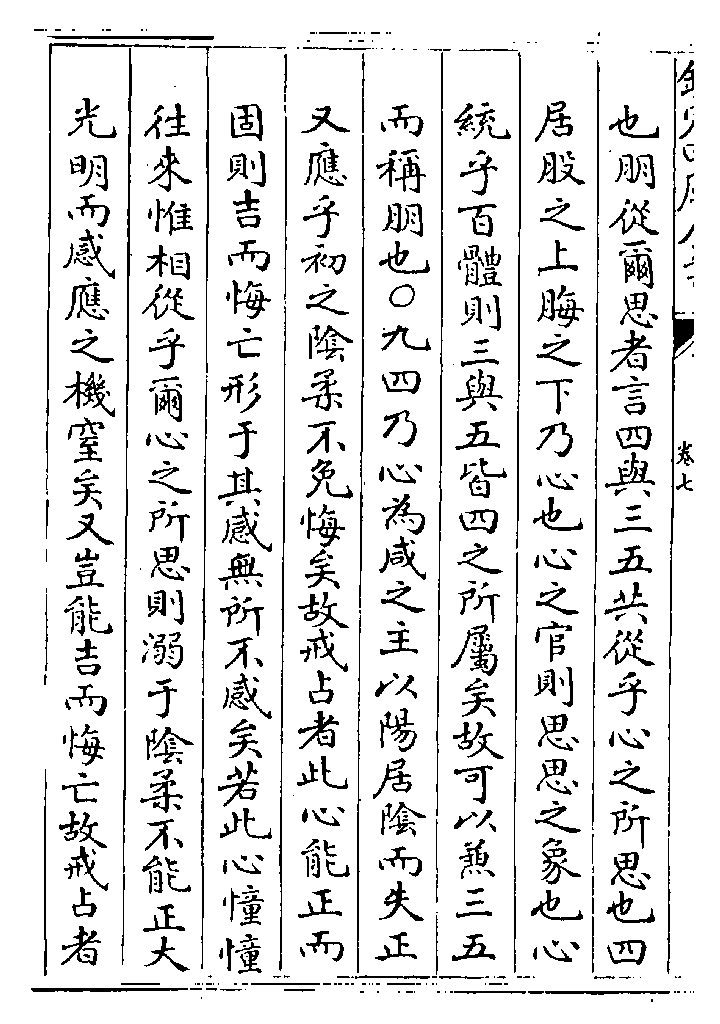 欽定四庫全書
卷七
也朋從爾思者言四與三五共從乎心之所思也四
居股之上脢之下乃心也心之官則思思之象也心
統乎百體則三與五皆四之所屬矣故可以兼三五
而稱朋也○九四乃心為咸之主以陽居陰而失正
又應乎初之陰柔不免悔矣故戒占者此心能正而
固則吉而悔亡形于其感無所不感矣若此心憧憧
往來惟相從乎爾心之所思則溺于陰柔不能正大
光明而感應之機窒矣又豈能吉而悔亡故戒占者